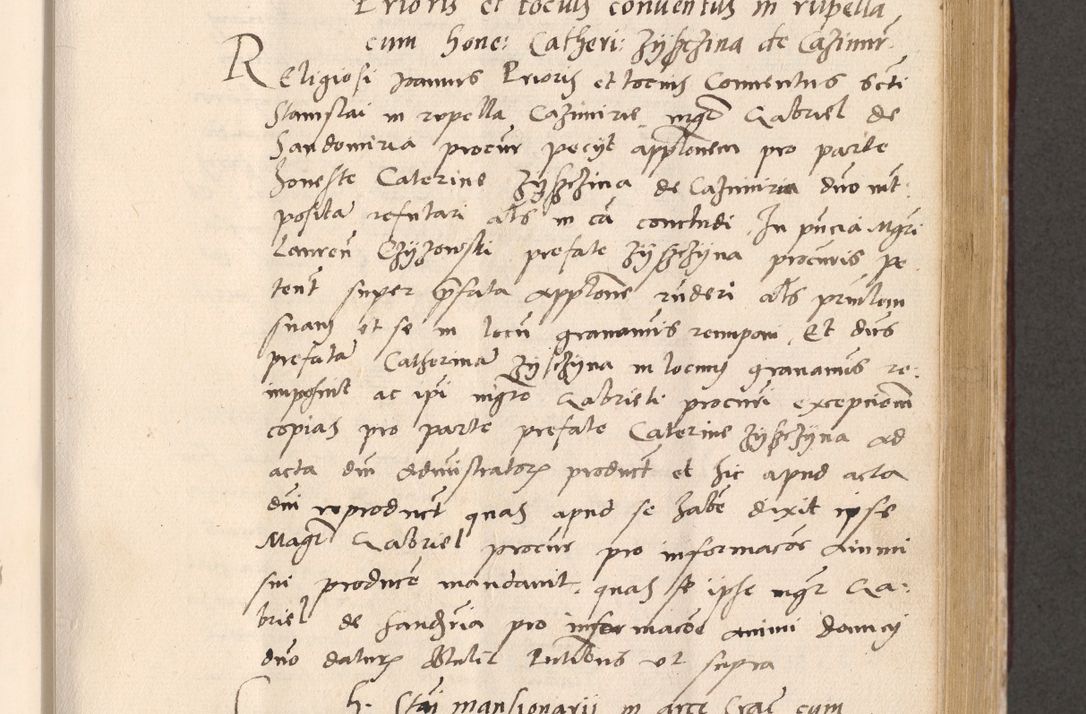 Prioris et tocius conventus in rupella
cum hone: Catheri: Zyſzczina de Cazimir.
Religiosi Joannis Prioris et tocius Conventus Scti
Stanislai in rupella Cazimirie mgr Gabriel de
Sandomiria procur petiit applonem pro parte
honeste Caterine Zyſzczina de Cazimiria duo int:
posita refutari als in ca concludi. In pncia Mgri
Lauren Czyzowski prefate Zyſzczyna procuris pe
tent super pfata applone
suam et se in locu gravaminis reimponi. Et dns
prefata Catherina Zyſzczyna in locum gravaminis re:
imposuit ac ipi mgro Gabrieli procuri excepcionu
copias pro parte prefate Caterine Zyſzczyna ad
acta dni Administrator product et hic apud acta
dni reproduct quas apud se habe dixit ipse
Magr Gabriel procur pro informacoe animi
sui producere mandavit. quas se ipse mgr Ga:
briel de Sandria pro informacoe animi domicij
dno datur Pntibus ut supra
h. Stai mansionarii in arce Crac cum